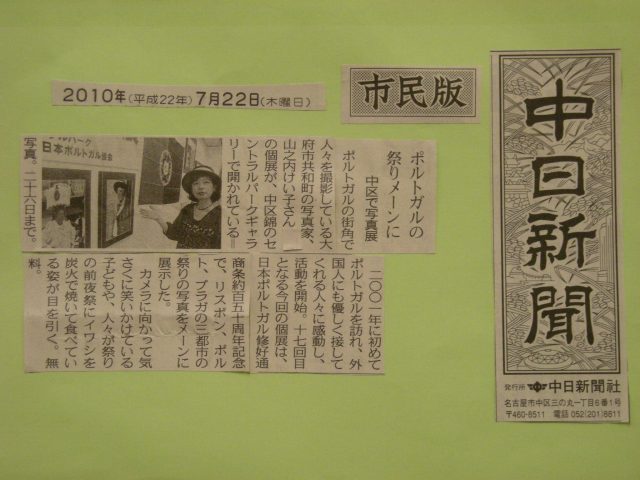 2010年(平成22年)7月22日(木曜日)
市民版
中日新聞
発行所 中日新聞社
名古屋市中区三の丸一丁目6番1号
〒460-8511 電話 052(201)8811
ポルトガルの
祭りメーンに
中区で写真展
ポルトガルの街角で
人々を撮影している大
府市共和町の写真家、
山之内けい子さん
の個展が、中区錦のセ
ントラルパークギャラ
リーで開かれている＝
写真。二十六日まで。
パーク
日本ポルトガル協会
二〇〇一年に初めて
ポルトガルを訪れ、外
国人にも優しく接して
くれる人々に感動し、
活動を開始。十七回目
となる今回の個展は、
日本ポルトガル修好通
商条約百五十周年記念
で、リスボン、ポル
ト、ブラガの三都市の
祭りの写真をメーンに
展示した。
カメラに向かって気
さくに笑いかけている
子どもや、人々が祭り
の前夜祭にイワシを
炭火で焼いて食べてい
る姿が目を引く。無
料。